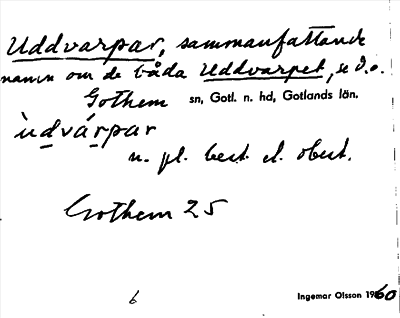 Uddvarpar, sammanfattande
namn om de båda Uddvarpet, se d.o.
Gothem sn, Gotl. n. hd, Gotlands län.
ùdvárpar
n. pl. best. el. obest.
Gothem 25
6 Ingemar Olsson 1960